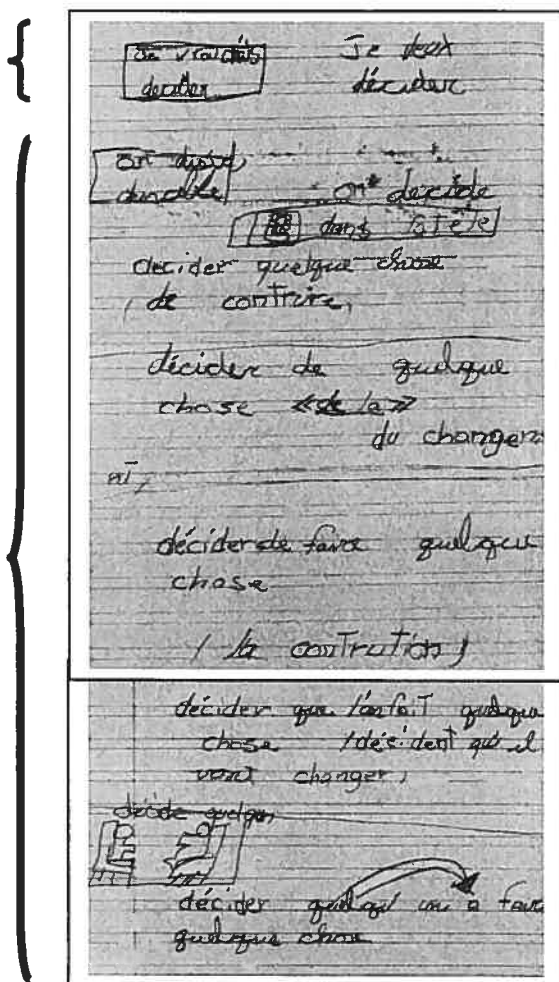 Je vraidis Je deux
decider décider
on
on* decide
dans la tête
decider quelque chose
, de contruire,
décider de quelque
chose «de la»
du changem
ent,
décider de faire quelque
chose
/ la contrution /
décider que l'on fait quelque
chose /décident qu'il
vont changer,
décide quelqun
décider quelqu'un a faire
quelque chose